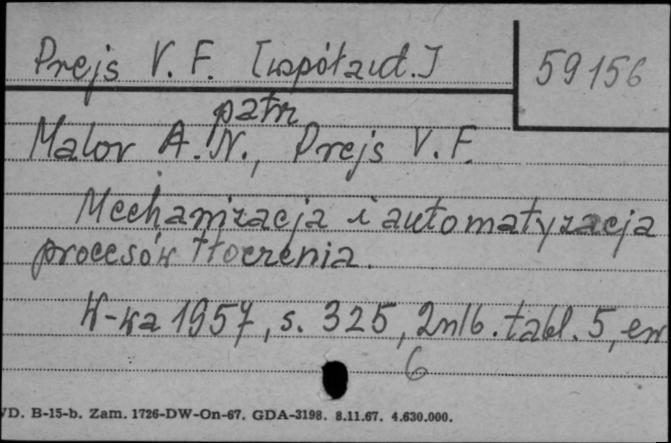 Prejs V. F. [współaut.]
59156
patrz
Malov A. N., Prejs V. F.
Mechanizacja i automatyzacja
procesów tłoczenia.
W-wa 1957, s. 325, 2nlb. tabl. 5, err
6
VD. B-15-b. Zam. 1726-DW-On-67. GDA-3198. 8.11.67. 4.630.000.